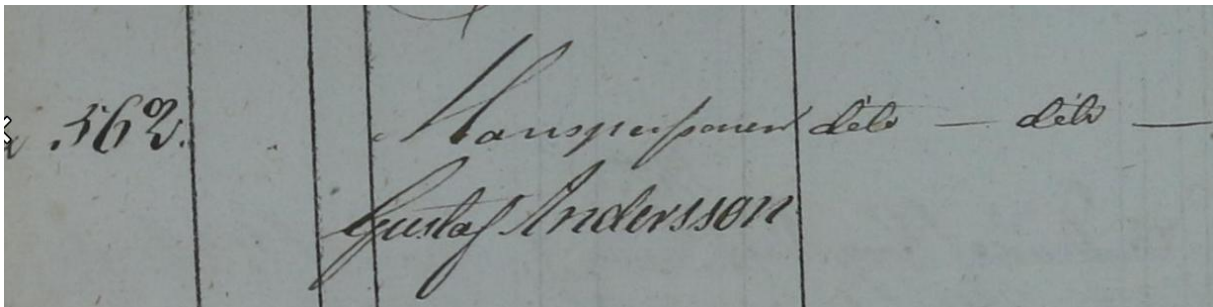 562. Manspersonen dito — dito —
Gustaf Andersson